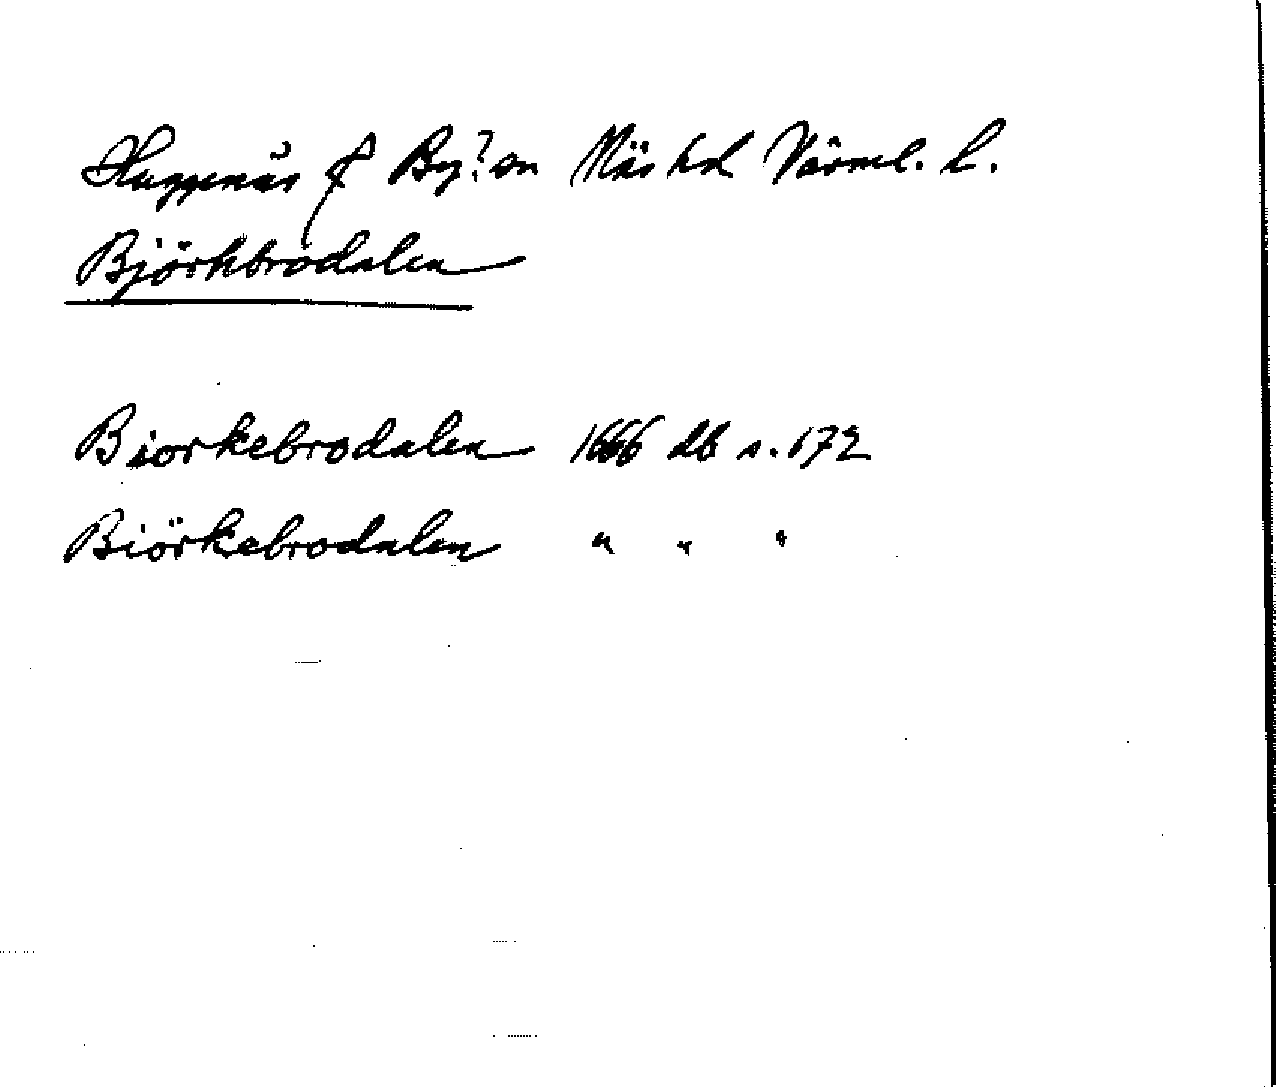 Huggenäs f By? sn Näs hd Värml. l.
Björkbrodalen
Biorkebrodalen 1666 db s. 672
Biörkebrodalen " " "